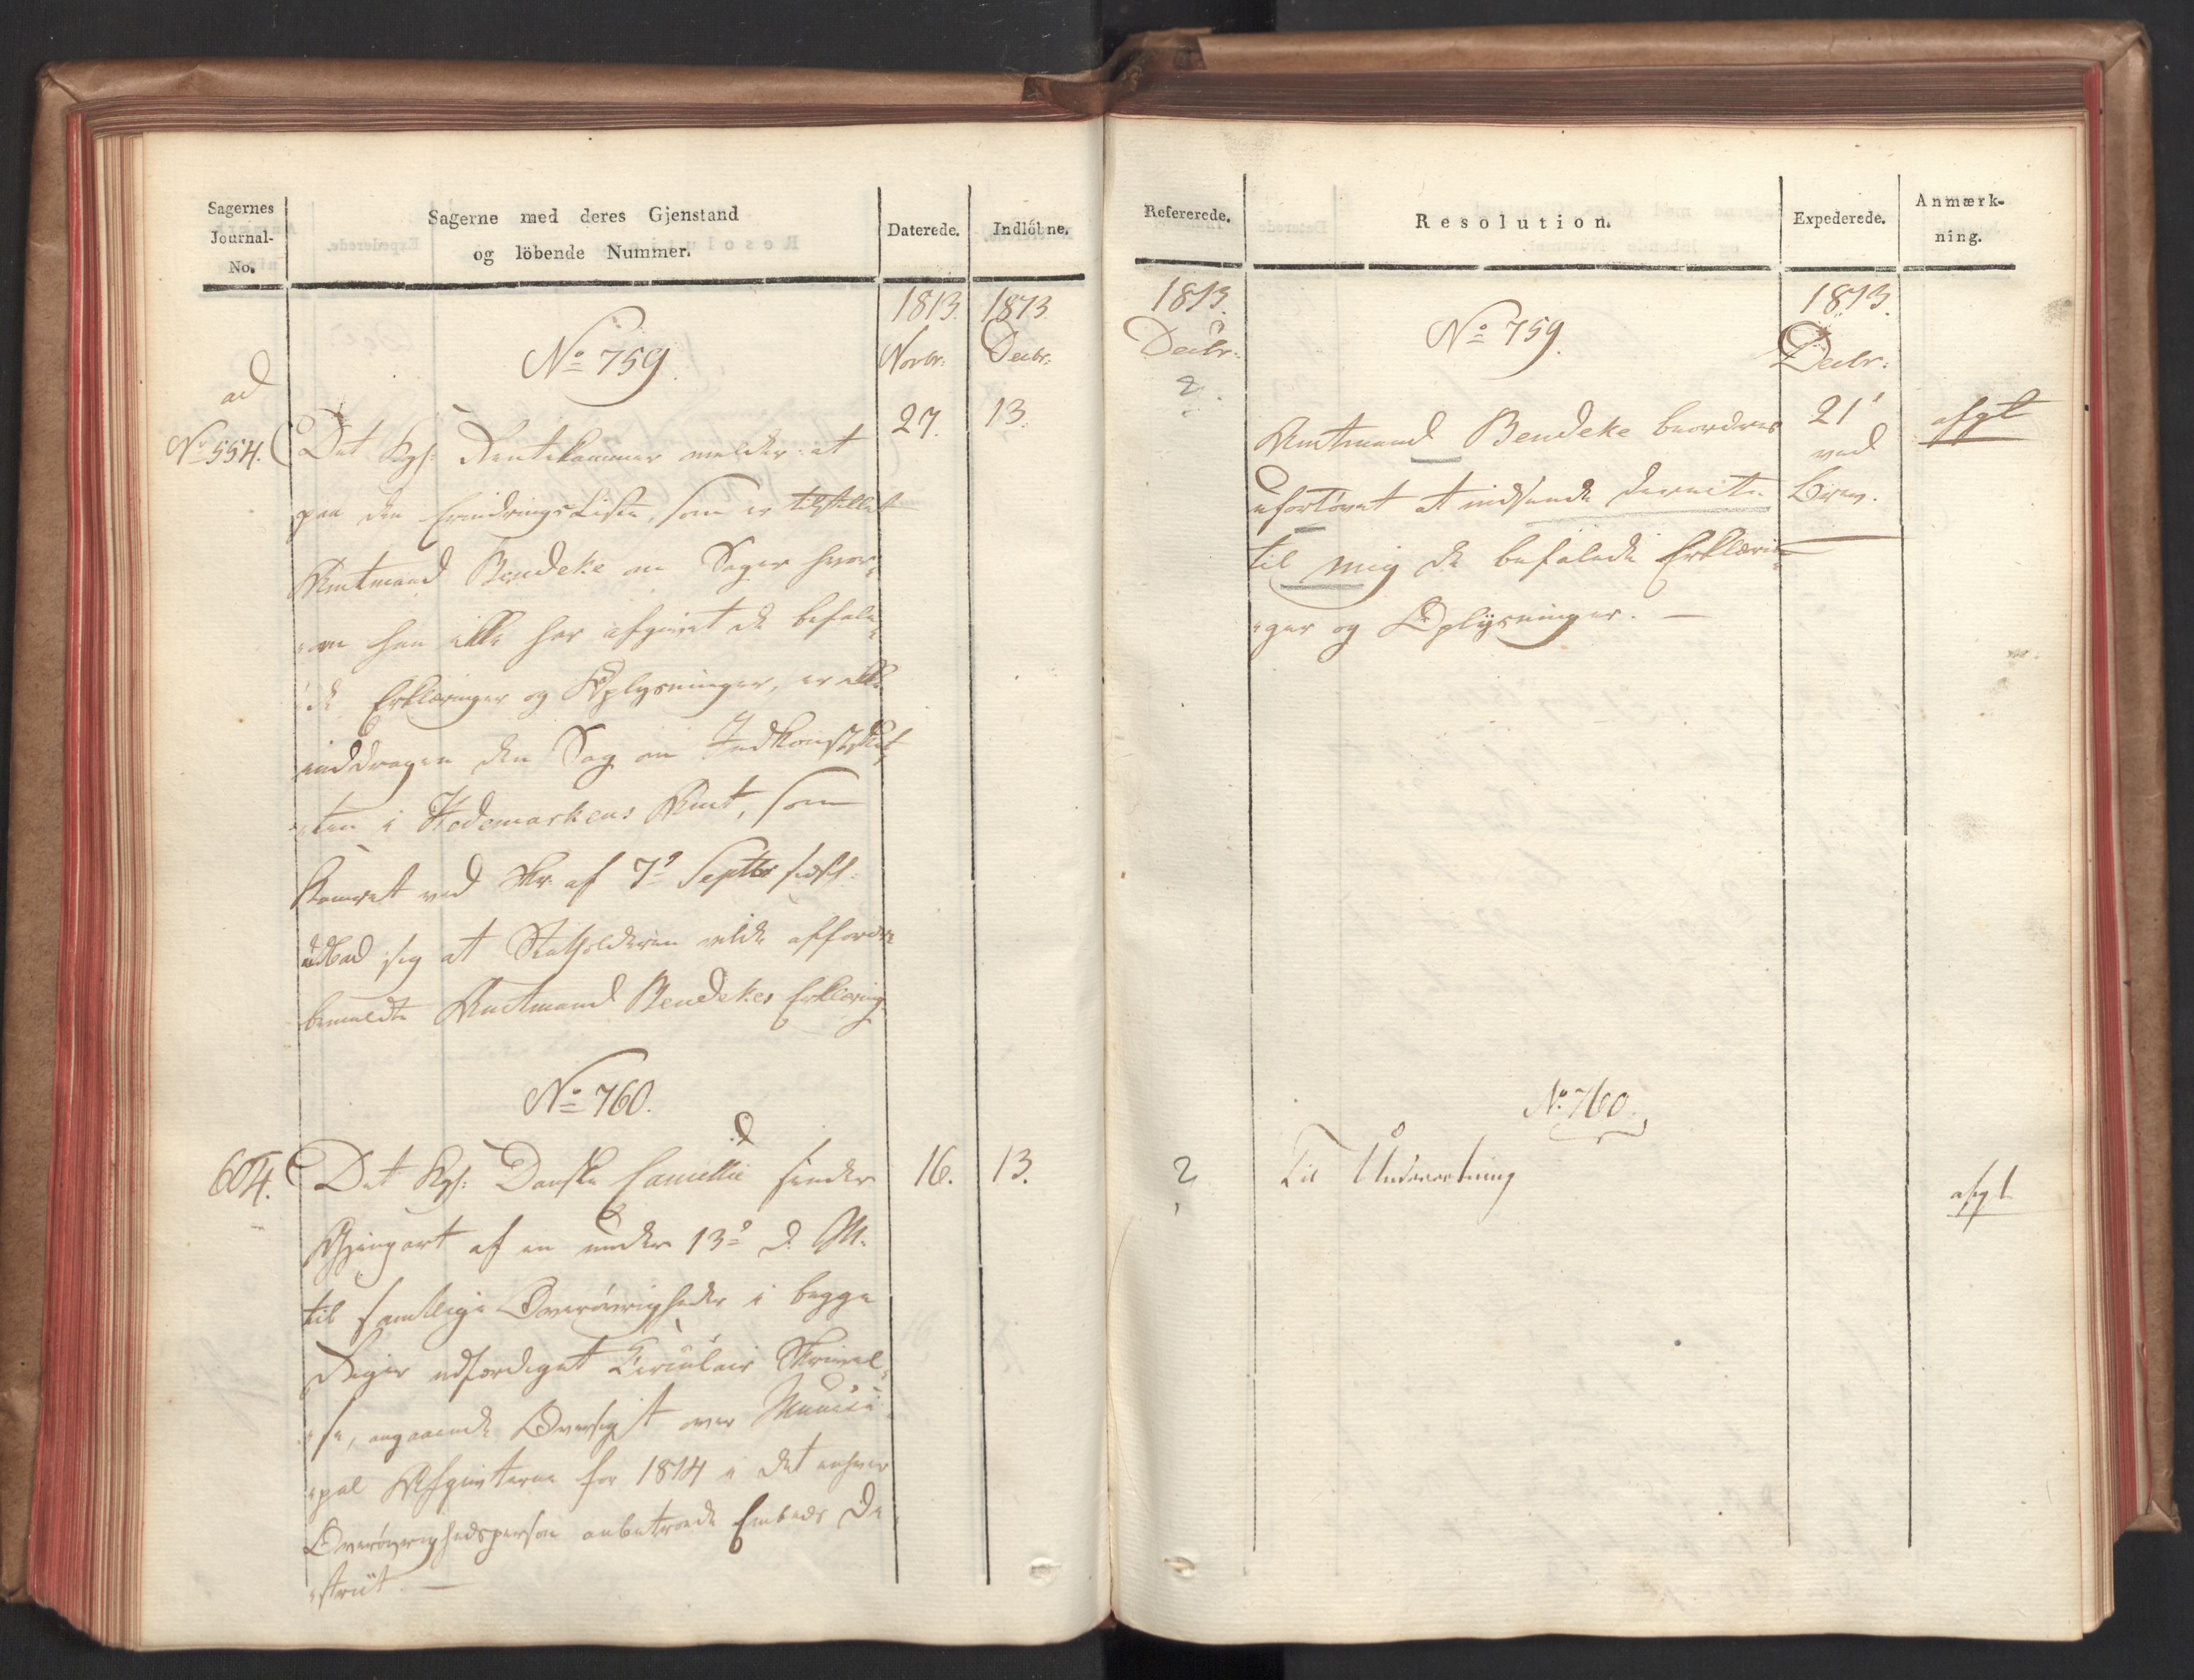 Sagernes
Journal-
No.
Sagerne med deres Gjenstand
og löbende Nummer.
Daterede.
Indlöbne.
1813.
1813
Novbr:
Decbr:
No 759.
ad
No 554.
27.
13.
Det Kgl: Rentekammer melder: at
paa den Erindrings Liste, som er tilstillet
Amtmand Bendeke om Sager hvor,,
,,om han ikke har afgivet de befale,,
,,de Erklæringer og Oplysninger, er ikke
inddragen den Sag om Indkomstskat,,
,,ten i Hedemarkens Amt, som
Kamret ved Skr. af 7de Septbr sidstl:
udbad sig at Statholderen vilde affordre
bemeldte Amtmand Bendekes Erklæring
No 760.
604.
16.
13.
Det Kgl: Danske Cancellie sender
Gjenpart af en under 13de d. M.
til samtlige Overøvrigheder i begge
Riger udfærdiget Circulair Skrivel,,
,,se, angaaende Oversigt over Munici,,
,,pal Afgivterne for 1814 i det enhver
Overøvrighedsperson anbetroede Embeds Di
,,strict. —
Refererede.
Resolution.
Expederede.
Anmærk-
ning.
1813.
Decbr:
2.
No 759.
1813.
Decbr:
21
ved
Brev.
afgt
Amtmand Bendeke beordres
ufortøvet at indsende directe
til mig de befalede Erklærin,,
,,ger og Oplysninger. —
No 760.
2
Til Underretning
afgt